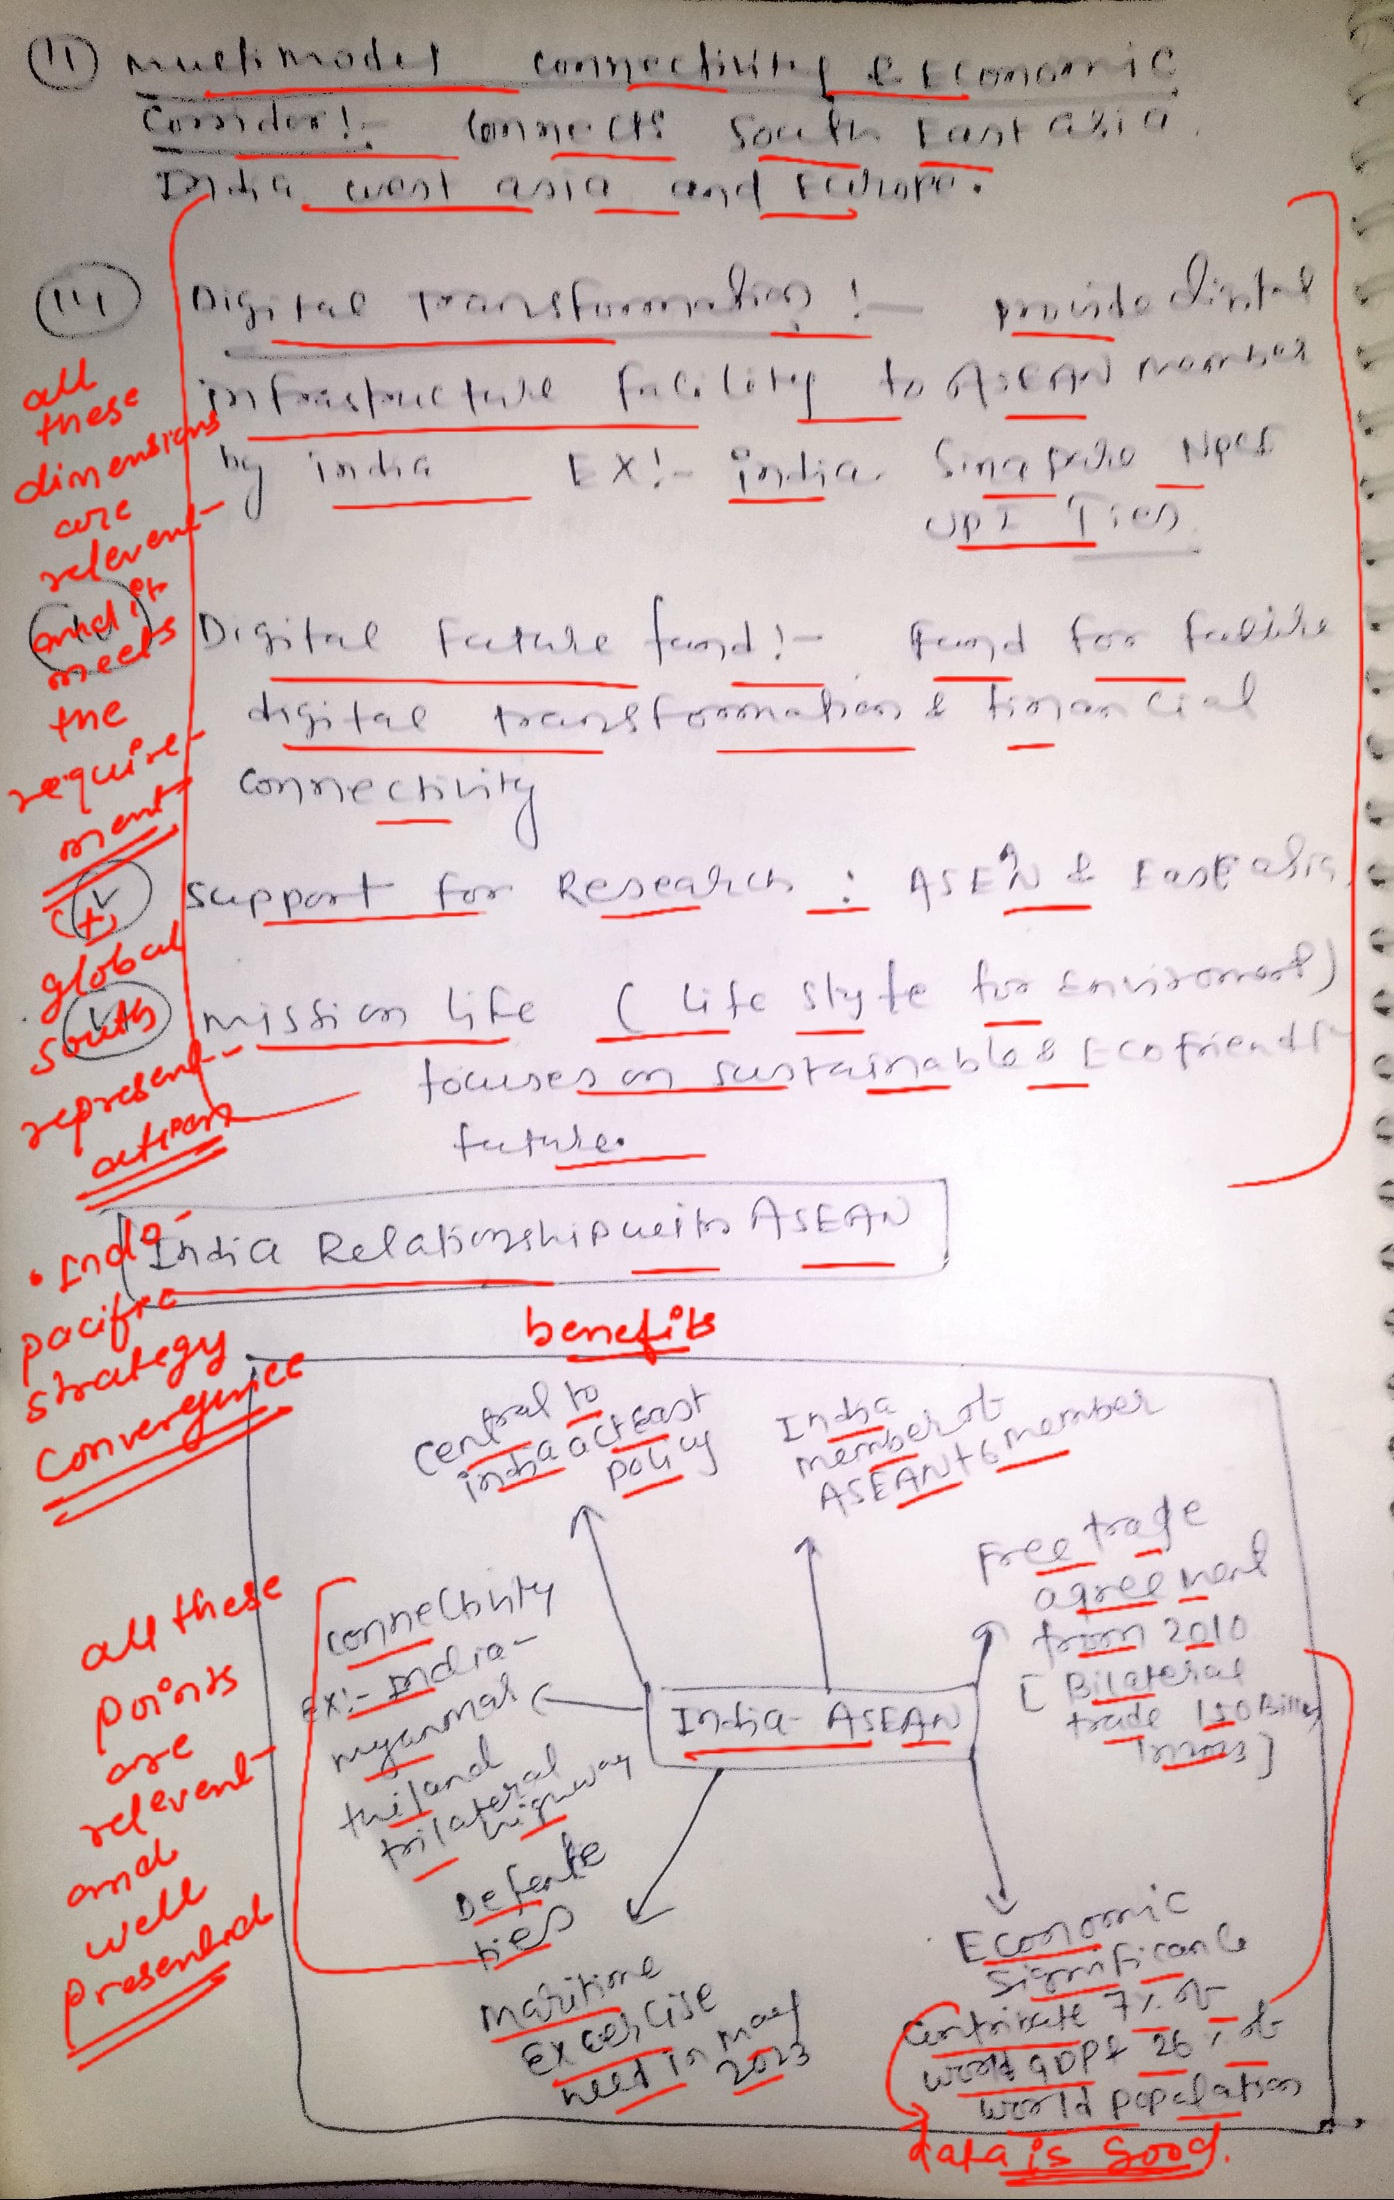 (11) multimodel connectivity & Economic
Corridor:- Connects South East asia,
India, west asia and Europe.
(111) Digital Transformation :- provide digital
infrastructure facility to ASEAN member
by india EX:- india Singapore NPCI
UPI Ties
Digital future fund :- Fund for future
digital transformation & financial
connectivity
(v) support for Research : ASEAN & East asia
mission life ( life style for Enviroment)
focuses on sustainable & Ecofriendly
future.
all
these
dimensions
are
relevent
and it
meets
the
require-
ment
(+)
global
South
represent-
ation
• Indo-
pacific
strategy
convergence
India Relationship with ASEAN
benefits
central to
india act East
policy
India
member of
ASEAN+6 member
Free trade
agreement
from 2010
[ Bilateral
trade 150 Billion
in 2023 ]
connectivity
EX:- India-
myanmar
thiland
trilateral
highway
India- ASEAN
Defence
ties
maritime
Excercise
held in may
2023
Economic
significance
contribute 7% of
world GDP & 26% of
world population
data is good.
all these
points
are
relevent
and
well
presented